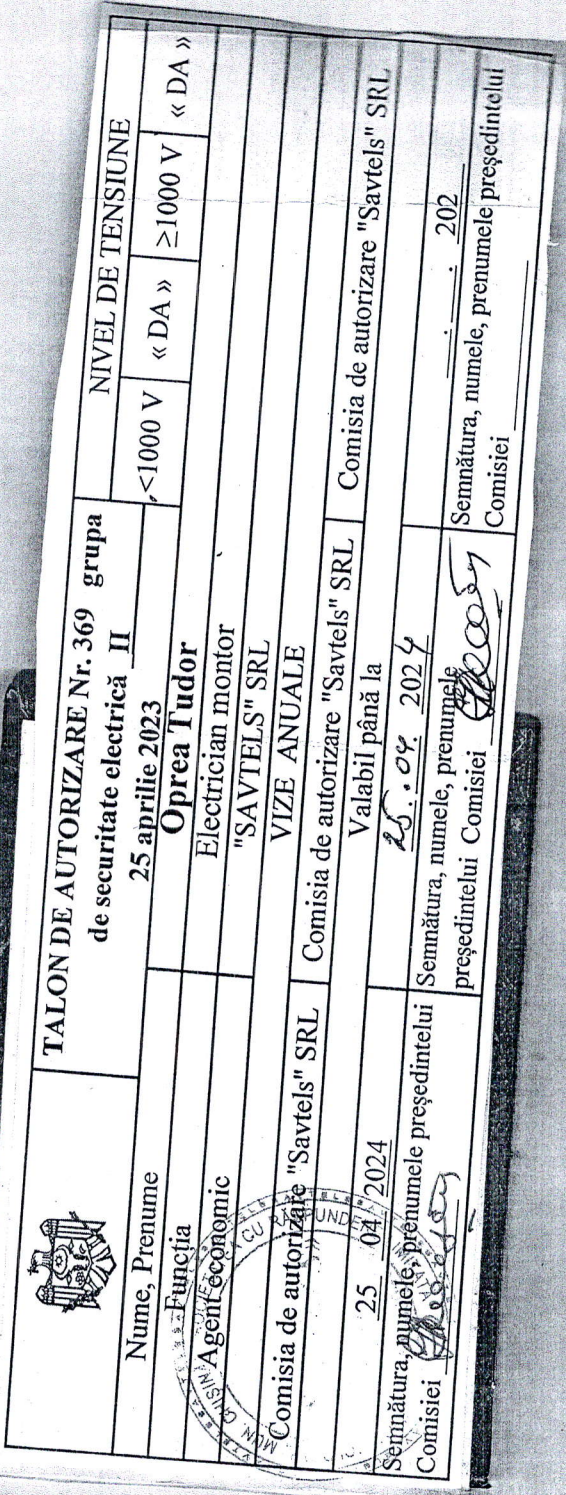 TALON DE AUTORIZARE Nr. 369 grupa
de securitate electrică II
25 aprilie 2023
NIVEL DE TENSIUNE
<1000 V « DA » ≥1000 V « DA »
Nume, Prenume Oprea Tudor
Funcția Electrician montor
Agent economic "SAVTELS" SRL
VIZE ANUALE
Comisia de autorizare "Savtels" SRL Comisia de autorizare "Savtels" SRL Comisia de autorizare "Savtels" SRL
Valabil până la
25 04 2024 25..04. 2024 . . 202
Semnătura, numele, prenumele președintelui
Comisiei
Semnătura, numele, prenumele
președintelui Comisiei
Semnătura, numele, prenumele președintelui
Comisiei
MUN. CHIȘINĂU
CU RĂSPUNDERE